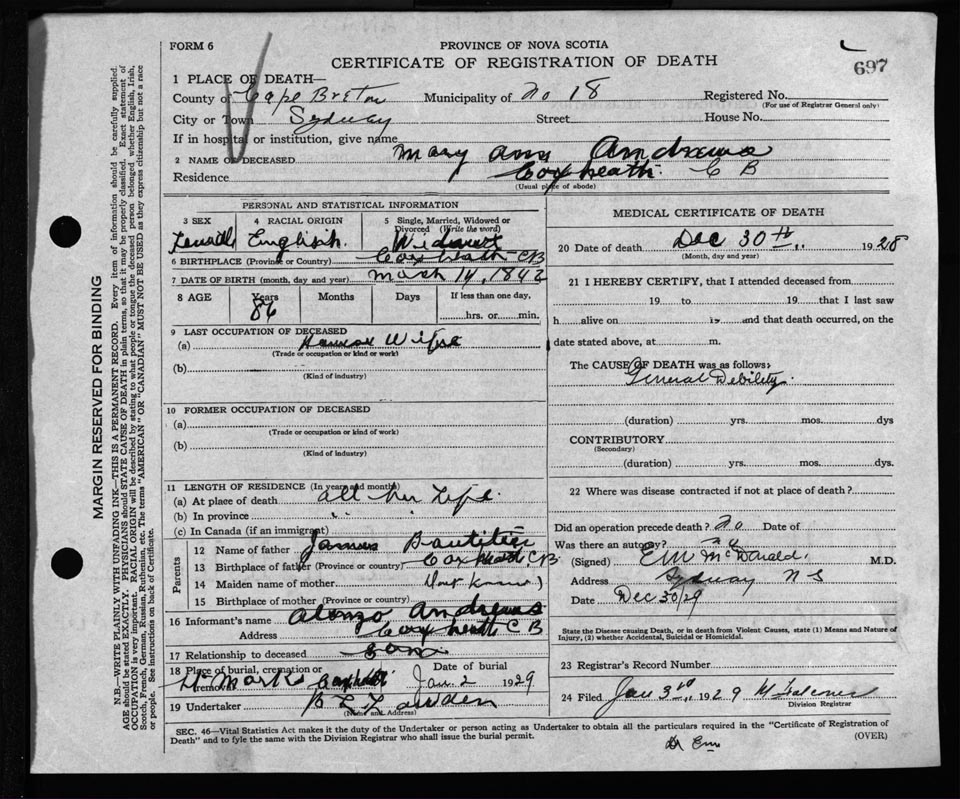 FORM 6
PROVINCE OF NOVA SCOTIA
CERTIFICATE OF REGISTRATION OF DEATH
697
1 PLACE OF DEATH—
County of Cape Breton Municipality of No 18 Registered No.
(For use of Registrar General only)
City or Town Sydney Street House No.
If in hospital or institution, give name
2 NAME OF DECEASED Mary Ann Andrews
Residence Coxheath C B
(Usual place of abode)
PERSONAL AND STATISTICAL INFORMATION
3 SEX 4 RACIAL ORIGIN 5 Single, Married, Widowed or Divorced (Write the word)
Female English
6 BIRTHPLACE (Province or Country) Coxheath CB
7 DATE OF BIRTH (month, day and year) March 14, 1842
8 AGE Years Months Days If less than one day,
86 hrs. or min.
9 LAST OCCUPATION OF DECEASED
(a) House Wife
(Trade or occupation or kind or work)
(b)
(Kind of industry)
10 FORMER OCCUPATION OF DECEASED
(a)
(Trade or occupation or kind of work)
(b)
(Kind of industry)
11 LENGTH OF RESIDENCE (In years and months)
(a) At place of death all her Life.
(b) In province " "
(c) In Canada (if an immigrant)
Parents
12 Name of father James
13 Birthplace of father (Province or country) Coxheath CB
14 Maiden name of mother Don't Know
15 Birthplace of mother (Province or Country)
16 Informant's name Alonzo Andrews
Address Coxheath C B
17 Relationship to deceased Son
18 Place of burial, cremation or removal St Marks Coxheath Date of burial Jan. 2 1929
19 Undertaker
(Name and Address)
MEDICAL CERTIFICATE OF DEATH
20 Date of death Dec 30th 1928
(Month, day and year)
21 I HEREBY CERTIFY, that I attended deceased from
19 to 19 that I last saw
h alive on 19 and that death occurred, on the
date stated above, at m.
The CAUSE OF DEATH was as follows:
General Debility
(duration) yrs. mos. dys
CONTRIBUTORY
(Secondary)
(duration) yrs. mos. dys.
22 Where was disease contracted if not at place of death?
Did an operation precede death? No Date of
Was there an autopsy?
(Signed) E M McDonald M.D.
Address Sydney N S
Date Dec 30/29
State the Disease causing Death, or in death from Violent Causes, state (1) Means and Nature of Injury, (2) whether Accidental, Suicidal or Homicidal.
23 Registrar's Record Number
24 Filed Jan 3rd 1929 M Falconer
Division Registrar
SEC. 46—Vital Statistics Act makes it the duty of the Undertaker or person acting as Undertaker to obtain all the particulars required in the "Certificate of Registration of
Death" and to fyle the same with the Division Registrar who shall issue the burial permit.
(OVER)
MARGIN RESERVED FOR BINDING
N.B.—WRITE PLAINLY WITH UNFADING INK—THIS IS A PERMANENT RECORD. Every item of information should be carefully supplied.
AGE should be stated EXACTLY. PHYSICIANS should STATE CAUSE OF DEATH in plain terms, so that it may be properly classified. Exact statement of
OCCUPATION is very important. RACIAL ORIGIN will be described by stating to what people or tongue the deceased person belonged whether English, Irish,
Scotch, French, German, Russian, Ruthenian, etc. The terms "AMERICAN" OR "CANADIAN" MUST NOT BE USED as they express citizenship but not a race
or people. See instructions on back of Certificate.